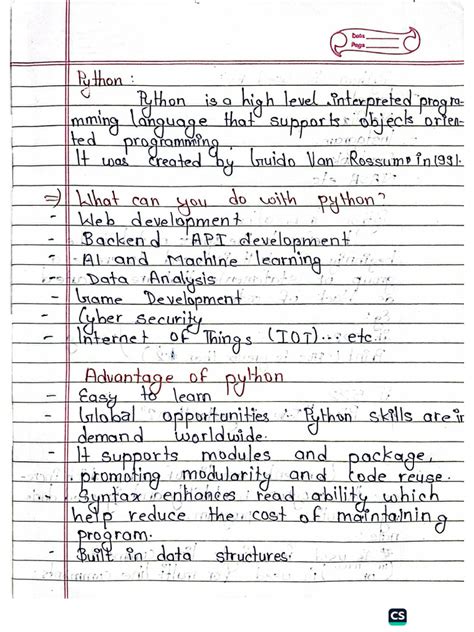 Date
Page
Python :
Python is a high level interpreted progra-
mming language that supports objects orien-
ted programming
It was created by Guido Van Rossum in 1991.
⇒ What can you do with python?
- Web development
- Backend API development
- AI and Machine learning
- Data Analysis
- Game Development
- Cyber security
- Internet of Things (IOT)... etc.
Advantage of python
- Easy to learn
- Global opportunities : Python skills are in
demand worldwide.
- It supports modules and package,
promoting modularity and code reuse.
- Syntax enhances read ability which
help reduce the cost of maintaining
program.
- Built in data structures.
CS